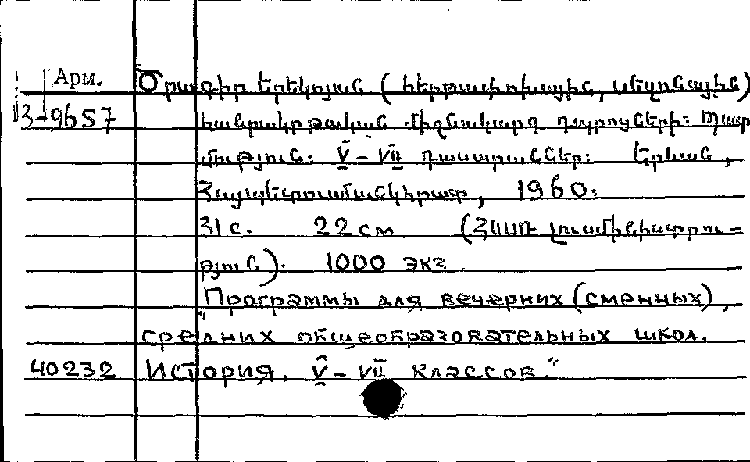 Арм.
Ծրագիր երեկոյան (հերթափոխային, սեզոնային)
3-9657 հանրակրթական միջնակարգ դպրոցների: Պատ
մություն: V-VII դասարաններ: Երևան,
Հայպետուսմանկհրատ, 1960:
31 с. 22 см (ՀՍՍՌ լուսմինիստրու-
թյուն). 1000 экз.
"Программы для вечерних (сменных),
средних общеобразовательных школ.
40232 История. V-VII классов."